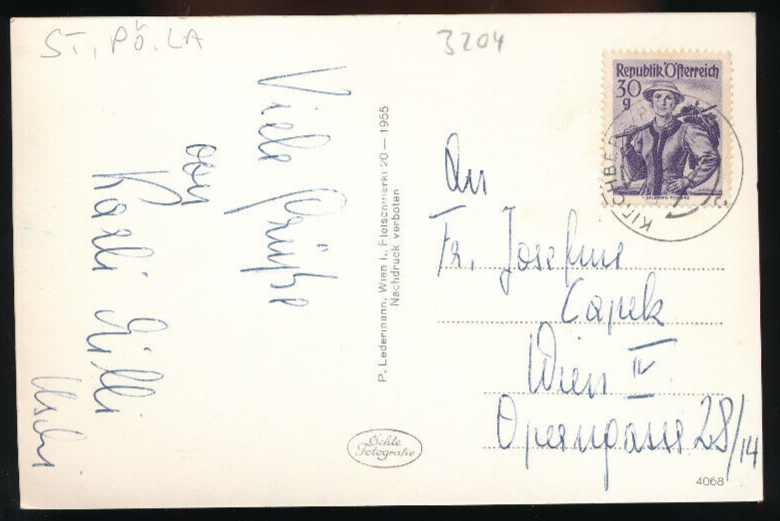 ST. PÖ. LA
3204
Viele Grüße
von
Karli Milli
Uschi
P. Ledermann, Wien I., Fleischmarkt 20 — 1955
Nachdruck verboten
Echte
Fotografie
Republik Österreich
30
g
KIRCHBE
An
Fr. Josefine
Capek
Wien IV
Operngasse 28/14
4068